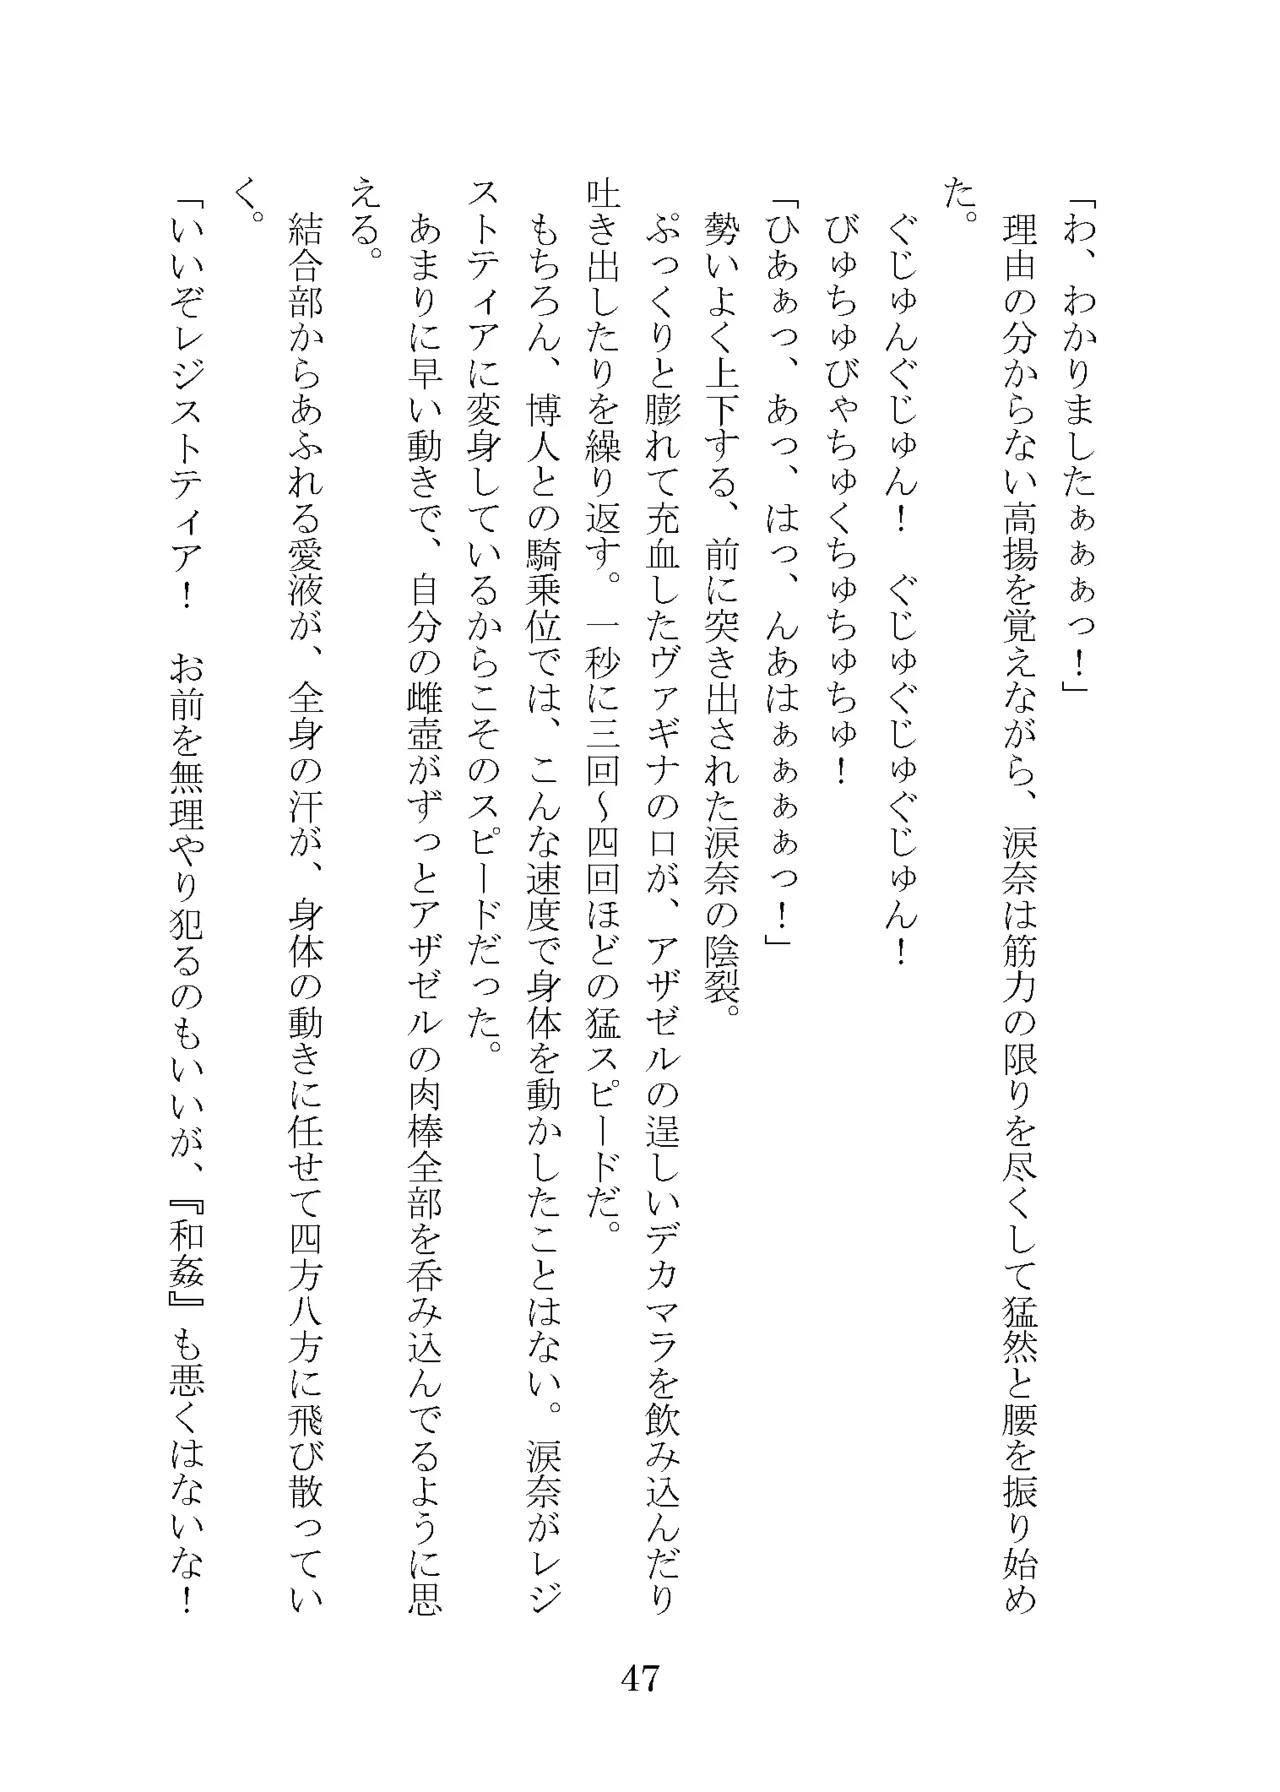 「わ、わかりましたぁぁぁっ！」
　理由の分からない高揚を覚えながら、涙奈は筋力の限りを尽くして猛然と腰を振り始め
た。
　ぐじゅんぐじゅん！　ぐじゅぐじゅぐじゅん！
　びゅちゅびゃちゅくちゅちゅちゅ！
「ひあぁっ、あっ、はっ、んあはぁぁぁぁっ！」
　勢いよく上下する、前に突き出された涙奈の陰裂。
　ぷっくりと膨れて充血したヴァギナの口が、アザゼルの逞しいデカマラを飲み込んだり
吐き出したりを繰り返す。一秒に三回〜四回ほどの猛スピードだ。
　もちろん、博人との騎乗位では、こんな速度で身体を動かしたことはない。涙奈がレジ
ストティアに変身しているからこそのスピードだった。
　あまりに早い動きで、自分の雌壺がずっとアザゼルの肉棒全部を呑み込んでるように思
える。
　結合部からあふれる愛液が、全身の汗が、身体の動きに任せて四方八方に飛び散ってい
く。
「いいぞレジストティア！　お前を無理やり犯るのもいいが、『和姦』も悪くはないな！
47